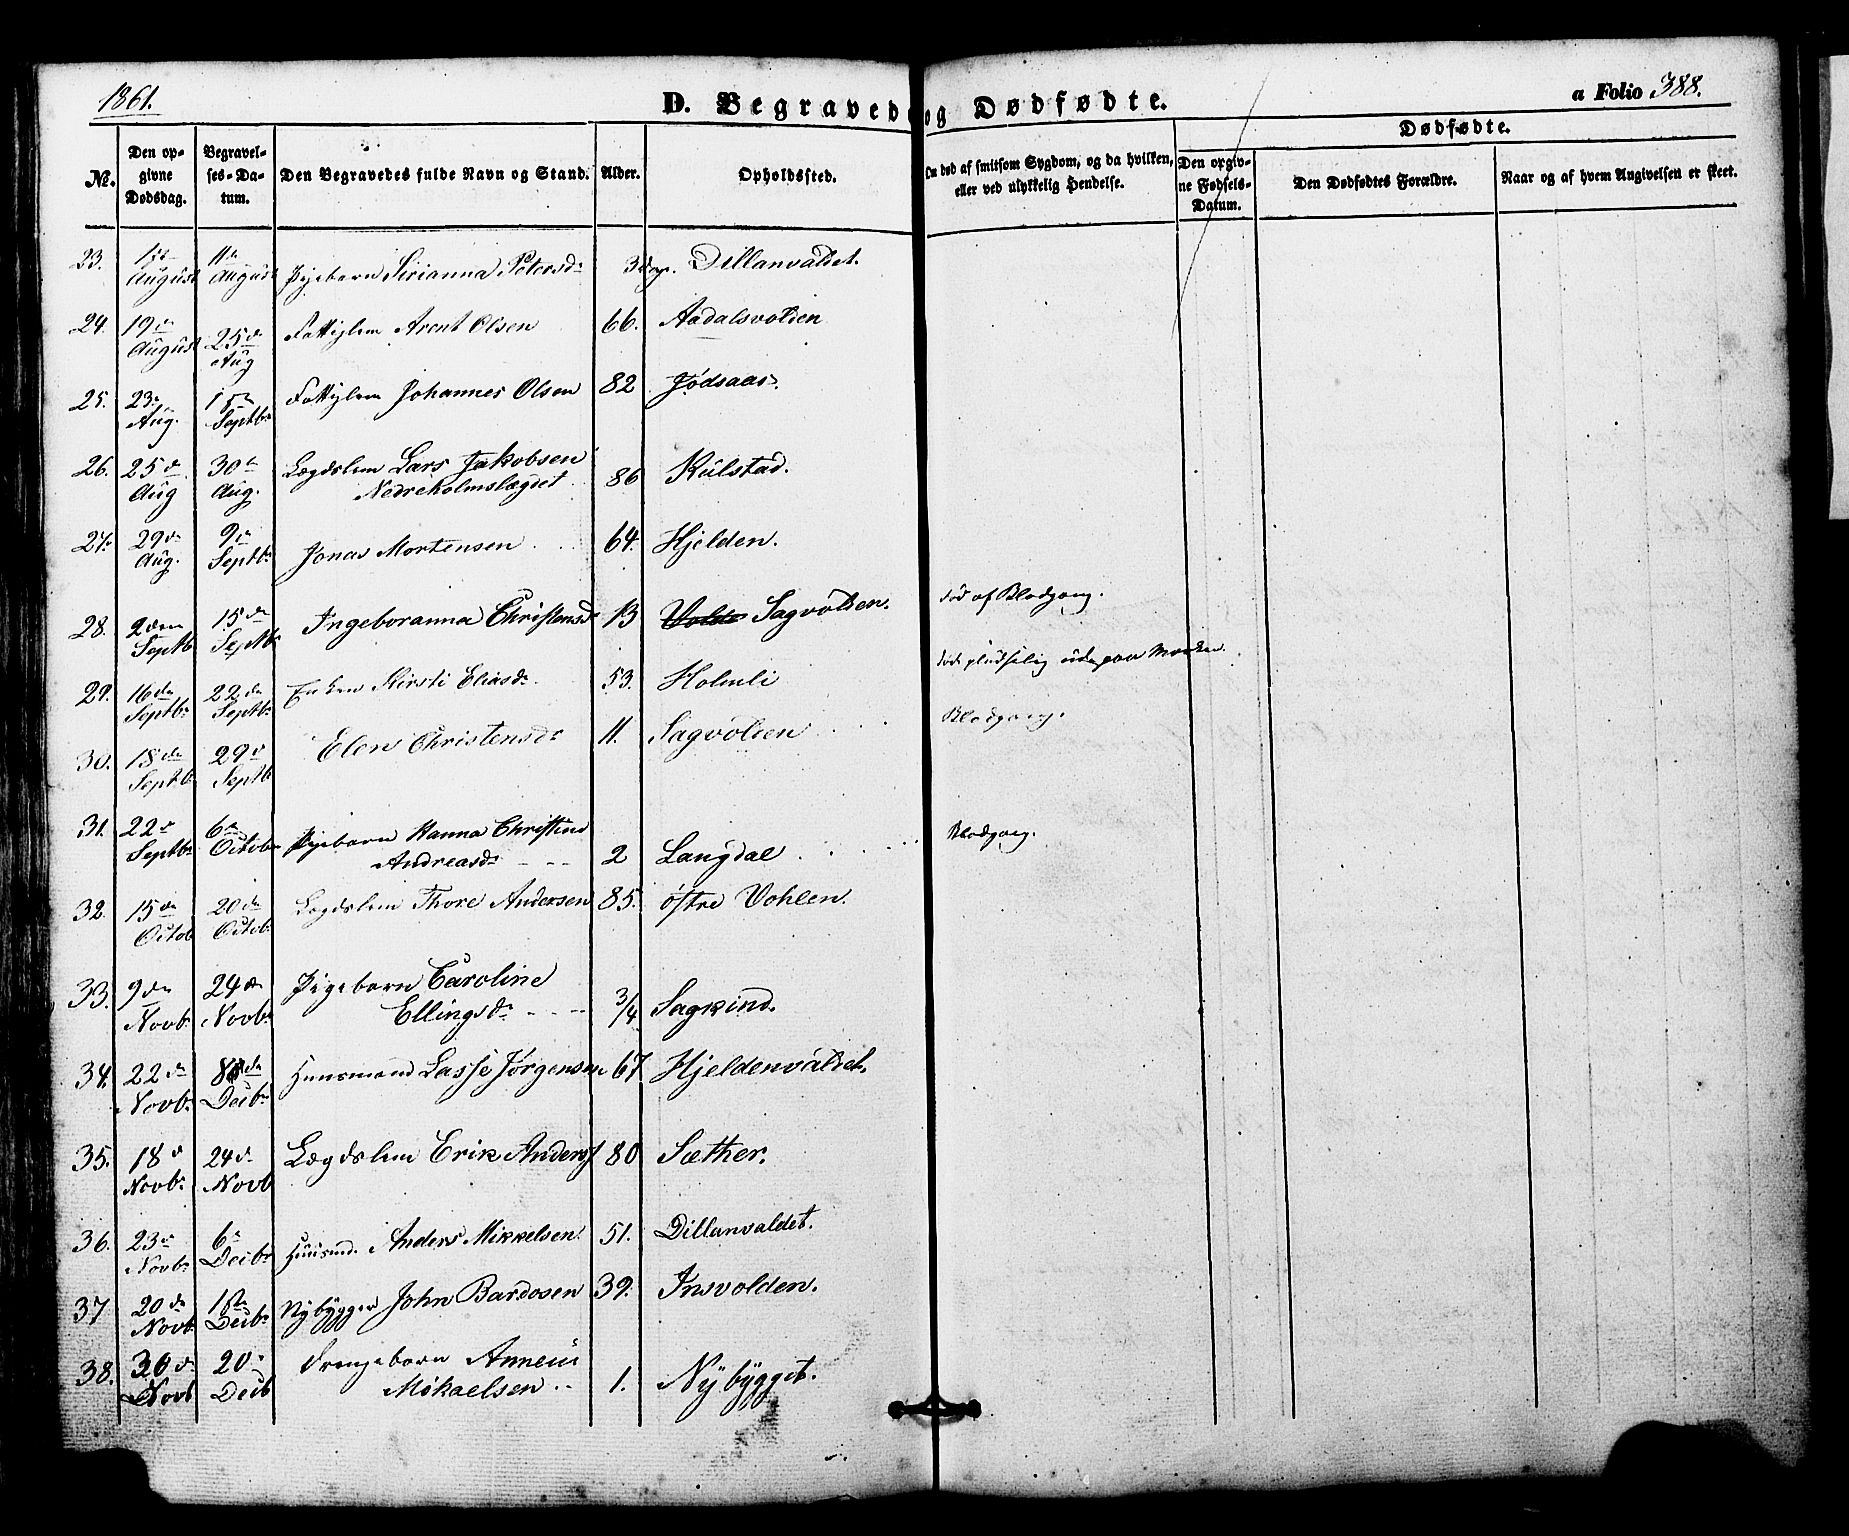 1861.
D. Begravede og Dødfødte.
a Folio 388.
No.
Den opgivne Dødsdag.
Begravelses-Datum.
Den Begravedes fulde Navn og Stand.
Alder.
Opholdssted.
Om død af smitsom Sygdom, og da hvilken, eller ved ulykkelig Hendelse.
Dødfødte.
Den opgivne Fødsels-Datum.
Den Dødfødtes Forældre.
Naar og af hvem Angivelsen er skeet.
23. August 11te August Pigebarn Sirianna Petersdr 3 Dage. Dillanvaldet.
24. 19de August 25de Aug Fattiglem Arent Olsen 66. Aadalsvolden
25. 23de Aug. 1ste Septbr Fattiglem Johannes Olsen 82 Jødsaas.
26. 25de Aug 30te Aug. Lægdslem Lars Jakobsen
Nedreholmslægdet 86 Kulstad.
27. 29de Aug. 9de Septbr Jonas Mortensen 64. Hjelden.
28. 2den Septb 15de Septbr Ingeboranna Christensd 13 Sagvolden. død af Blodgang.
29. 16de Septbr 22de Septbr Enken Kirsti Eliasdr 53. Holmli død pludselig ude paa Marken.
30. 18de Septbr 29de Septb Elen Christensdr 11. Sagvolden Blodgang.
31. 22de Septbr 6te Octobr Pigebarn Hanna Christine
Andreasdr - - - 2 Langdal Blodgang.
32. 15de Octob 20de Octobr Lægdslem Thore Andersen 85. østre Vohlen.
33. 9de Novb. 24de Novbr Pigebarn Caroline
Ellingsdr - - - 3/4 Sagkind.
34. 22de Novbr 8de Decbr Huusmand Lasse Jørgensen 67 Hjeldenvaldet.
35. 18de Novbr 24de Novb Lægdslem Erik Anders 80 Sæther.
36. 23de Novbr 6te Decbr Huusmd. Anders Mikkelsen 51. Dillanvaldet.
37 20de Novb 1ste Decbr Nybygger John Bardosen 39. Insvolden.
38. 30de Novb 20de Decb Drengebarn
Mikaelsen 1. Nybygget.